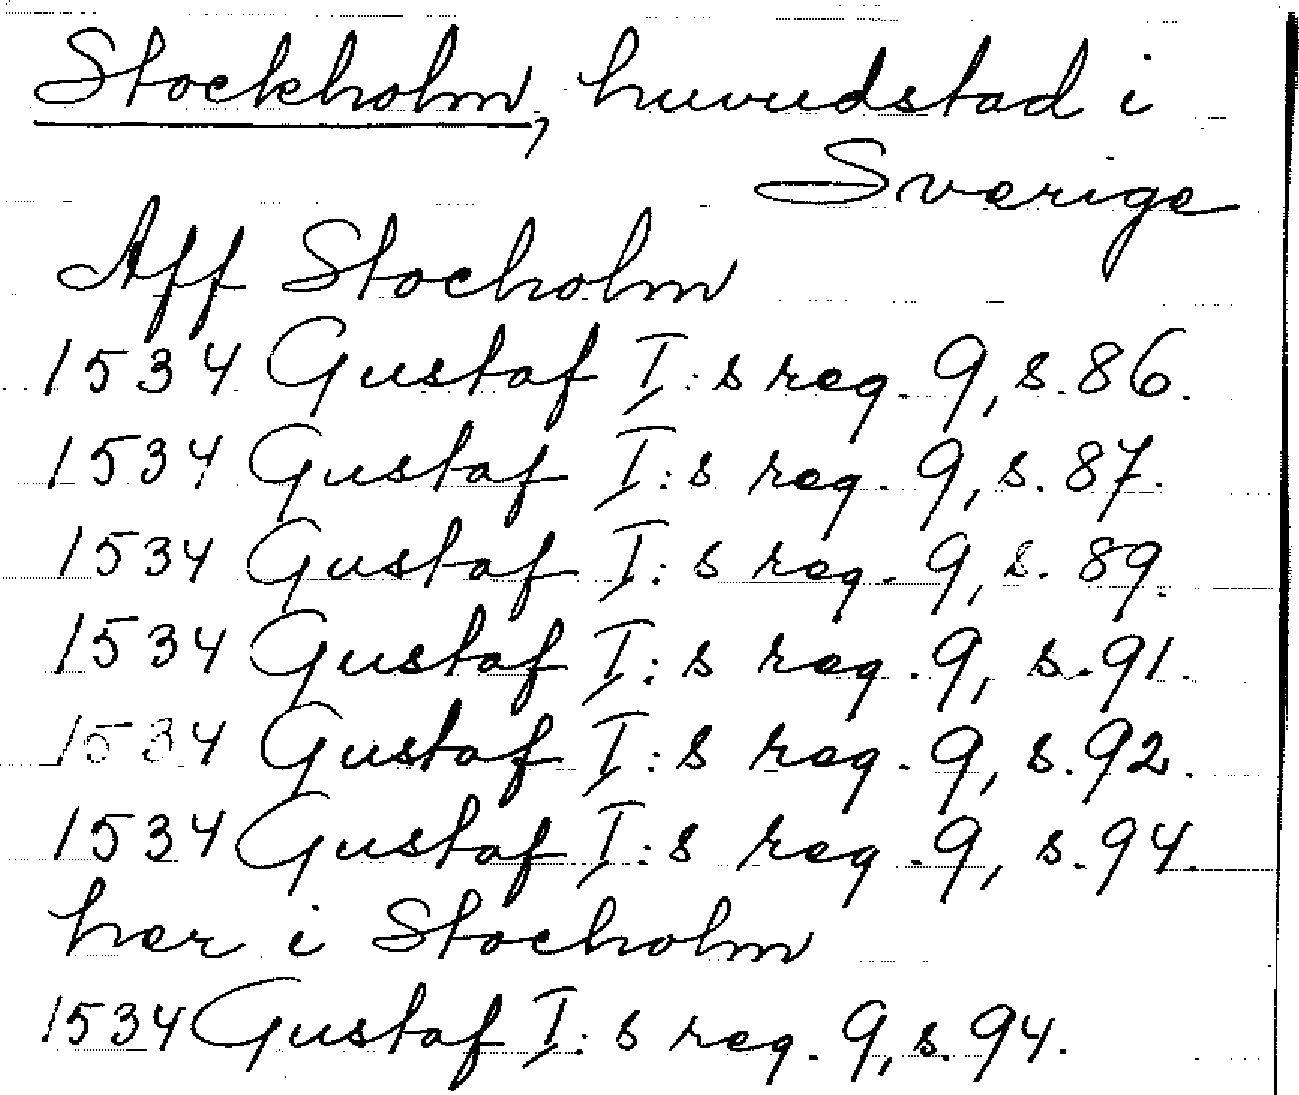 Stockholm, huvudstad i
Sverige
Aff Stocholm
1534 Gustaf I:s reg. 9, s. 86.
1534 Gustaf I:s reg. 9, s. 87.
1534 Gustaf I:s reg. 9, s. 89.
1534 Gustaf I:s reg. 9, s. 91.
1534 Gustaf I:s reg. 9, s. 92.
1534 Gustaf I:s reg. 9, s. 94.
her i Stocholm
1534 Gustaf I:s reg. 9, s. 94.